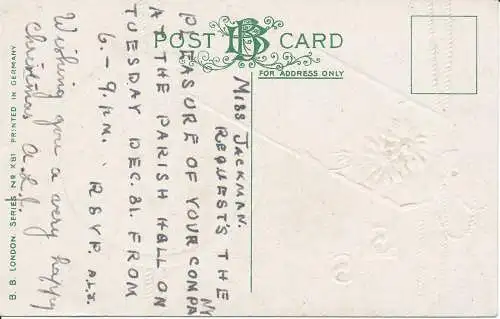 POST CARD
BB
FOR ADDRESS ONLY
MISS JACKMAN.
REQUESTS THE
PLEASURE OF YOUR COMPA
NY
AT THE PARISH HALL ON
TUESDAY DEC. 31. FROM
6. - 9. P.M. R.S.V.P. A.L.J.
Wishing you a very happy
Christmas A.L.J.
B. B. LONDON. SERIES No. X81 PRINTED IN GERMANY